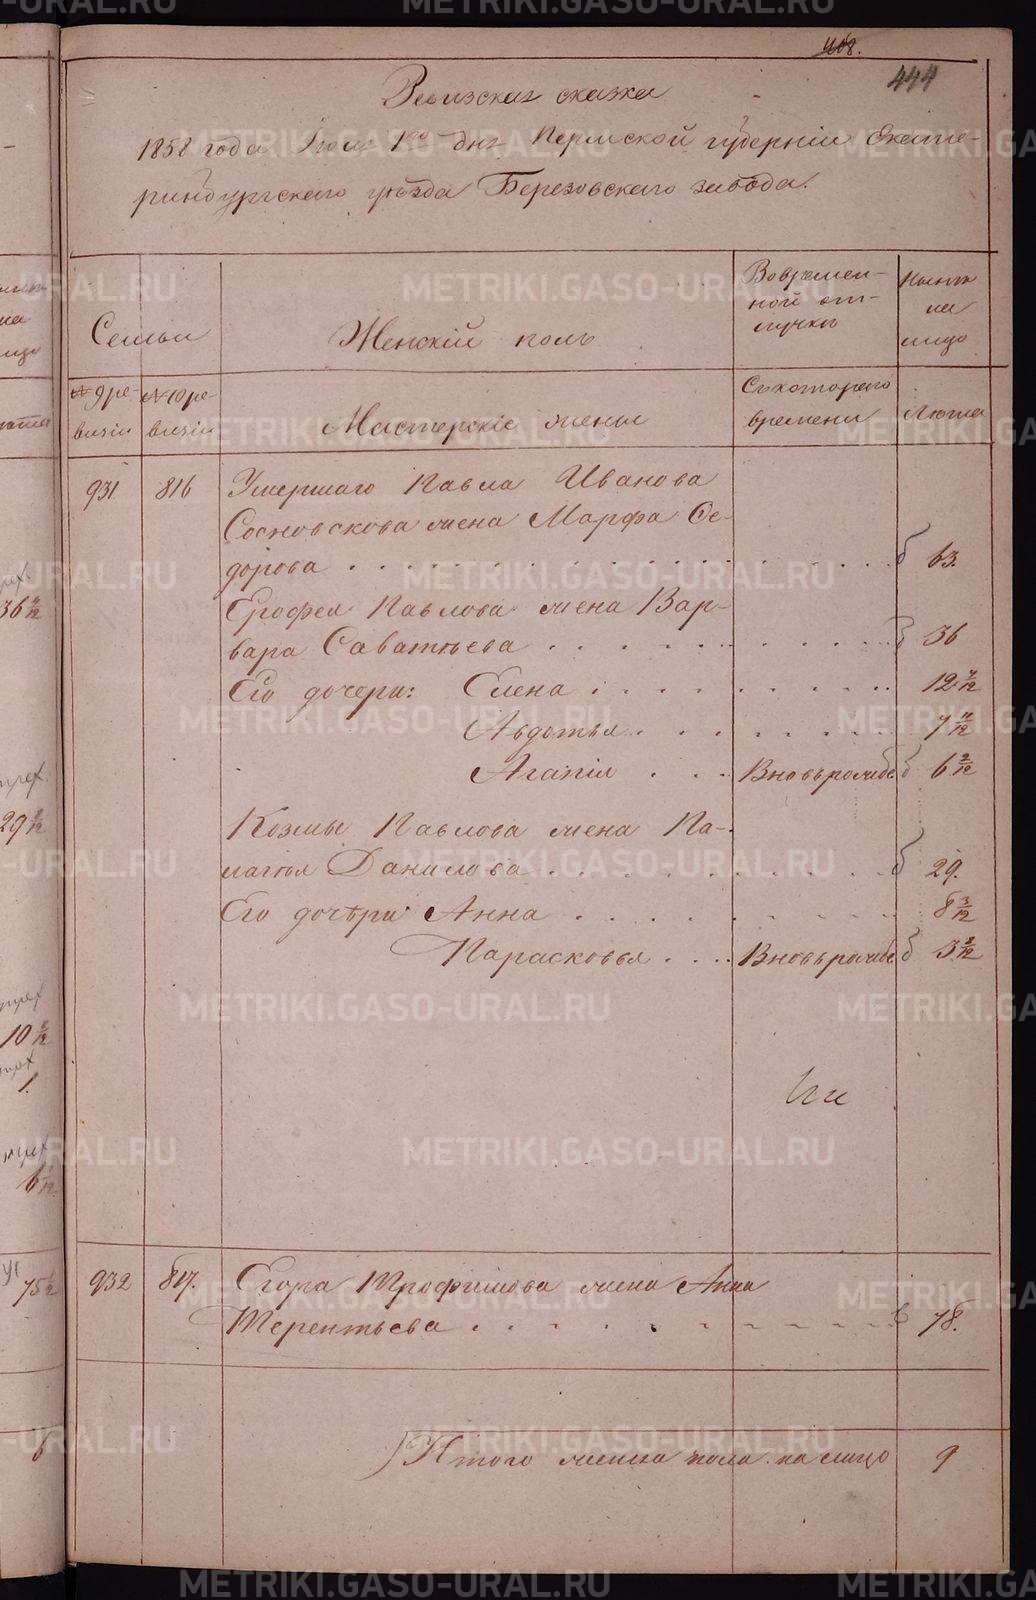 468.
444
Ревизская сказка
1858 года Іюля 1го дня Пермской губерніи Екате-
ринбургскаго уѣзда Березовскаго завода.
Семьи
Женскій полъ
Во времен-
ной от-
лучкѣ
Нынѣ
на
лицо
№ 9 ре-
визіи
№ 10 ре-
визіи
Мастерскіе жены
Съ котораго
времени
Лѣта
931 816 Умершаго Павла Иванова
Сосновскова жена Марфа Ѳе-
дорова 63.
Ерофея Павлова жена Вар-
вара Саватѣева 36
Его дочери: Елена 12 7/12
Авдотья 7 11/12
Агапія Вновьрожде 6 2/12
Козмы Павлова жена Па-
лагѣя Данилова 29.
Его дочѣри Анна 8 3/12
Парасковья Вновьрожде 3 8/12
932 817. Егора Трофимова жена Анна
Терентьева 78.
Итого женска пола на лицо 9
36
29
10
1.
6
75
METRIKI.GASO-URAL.RU